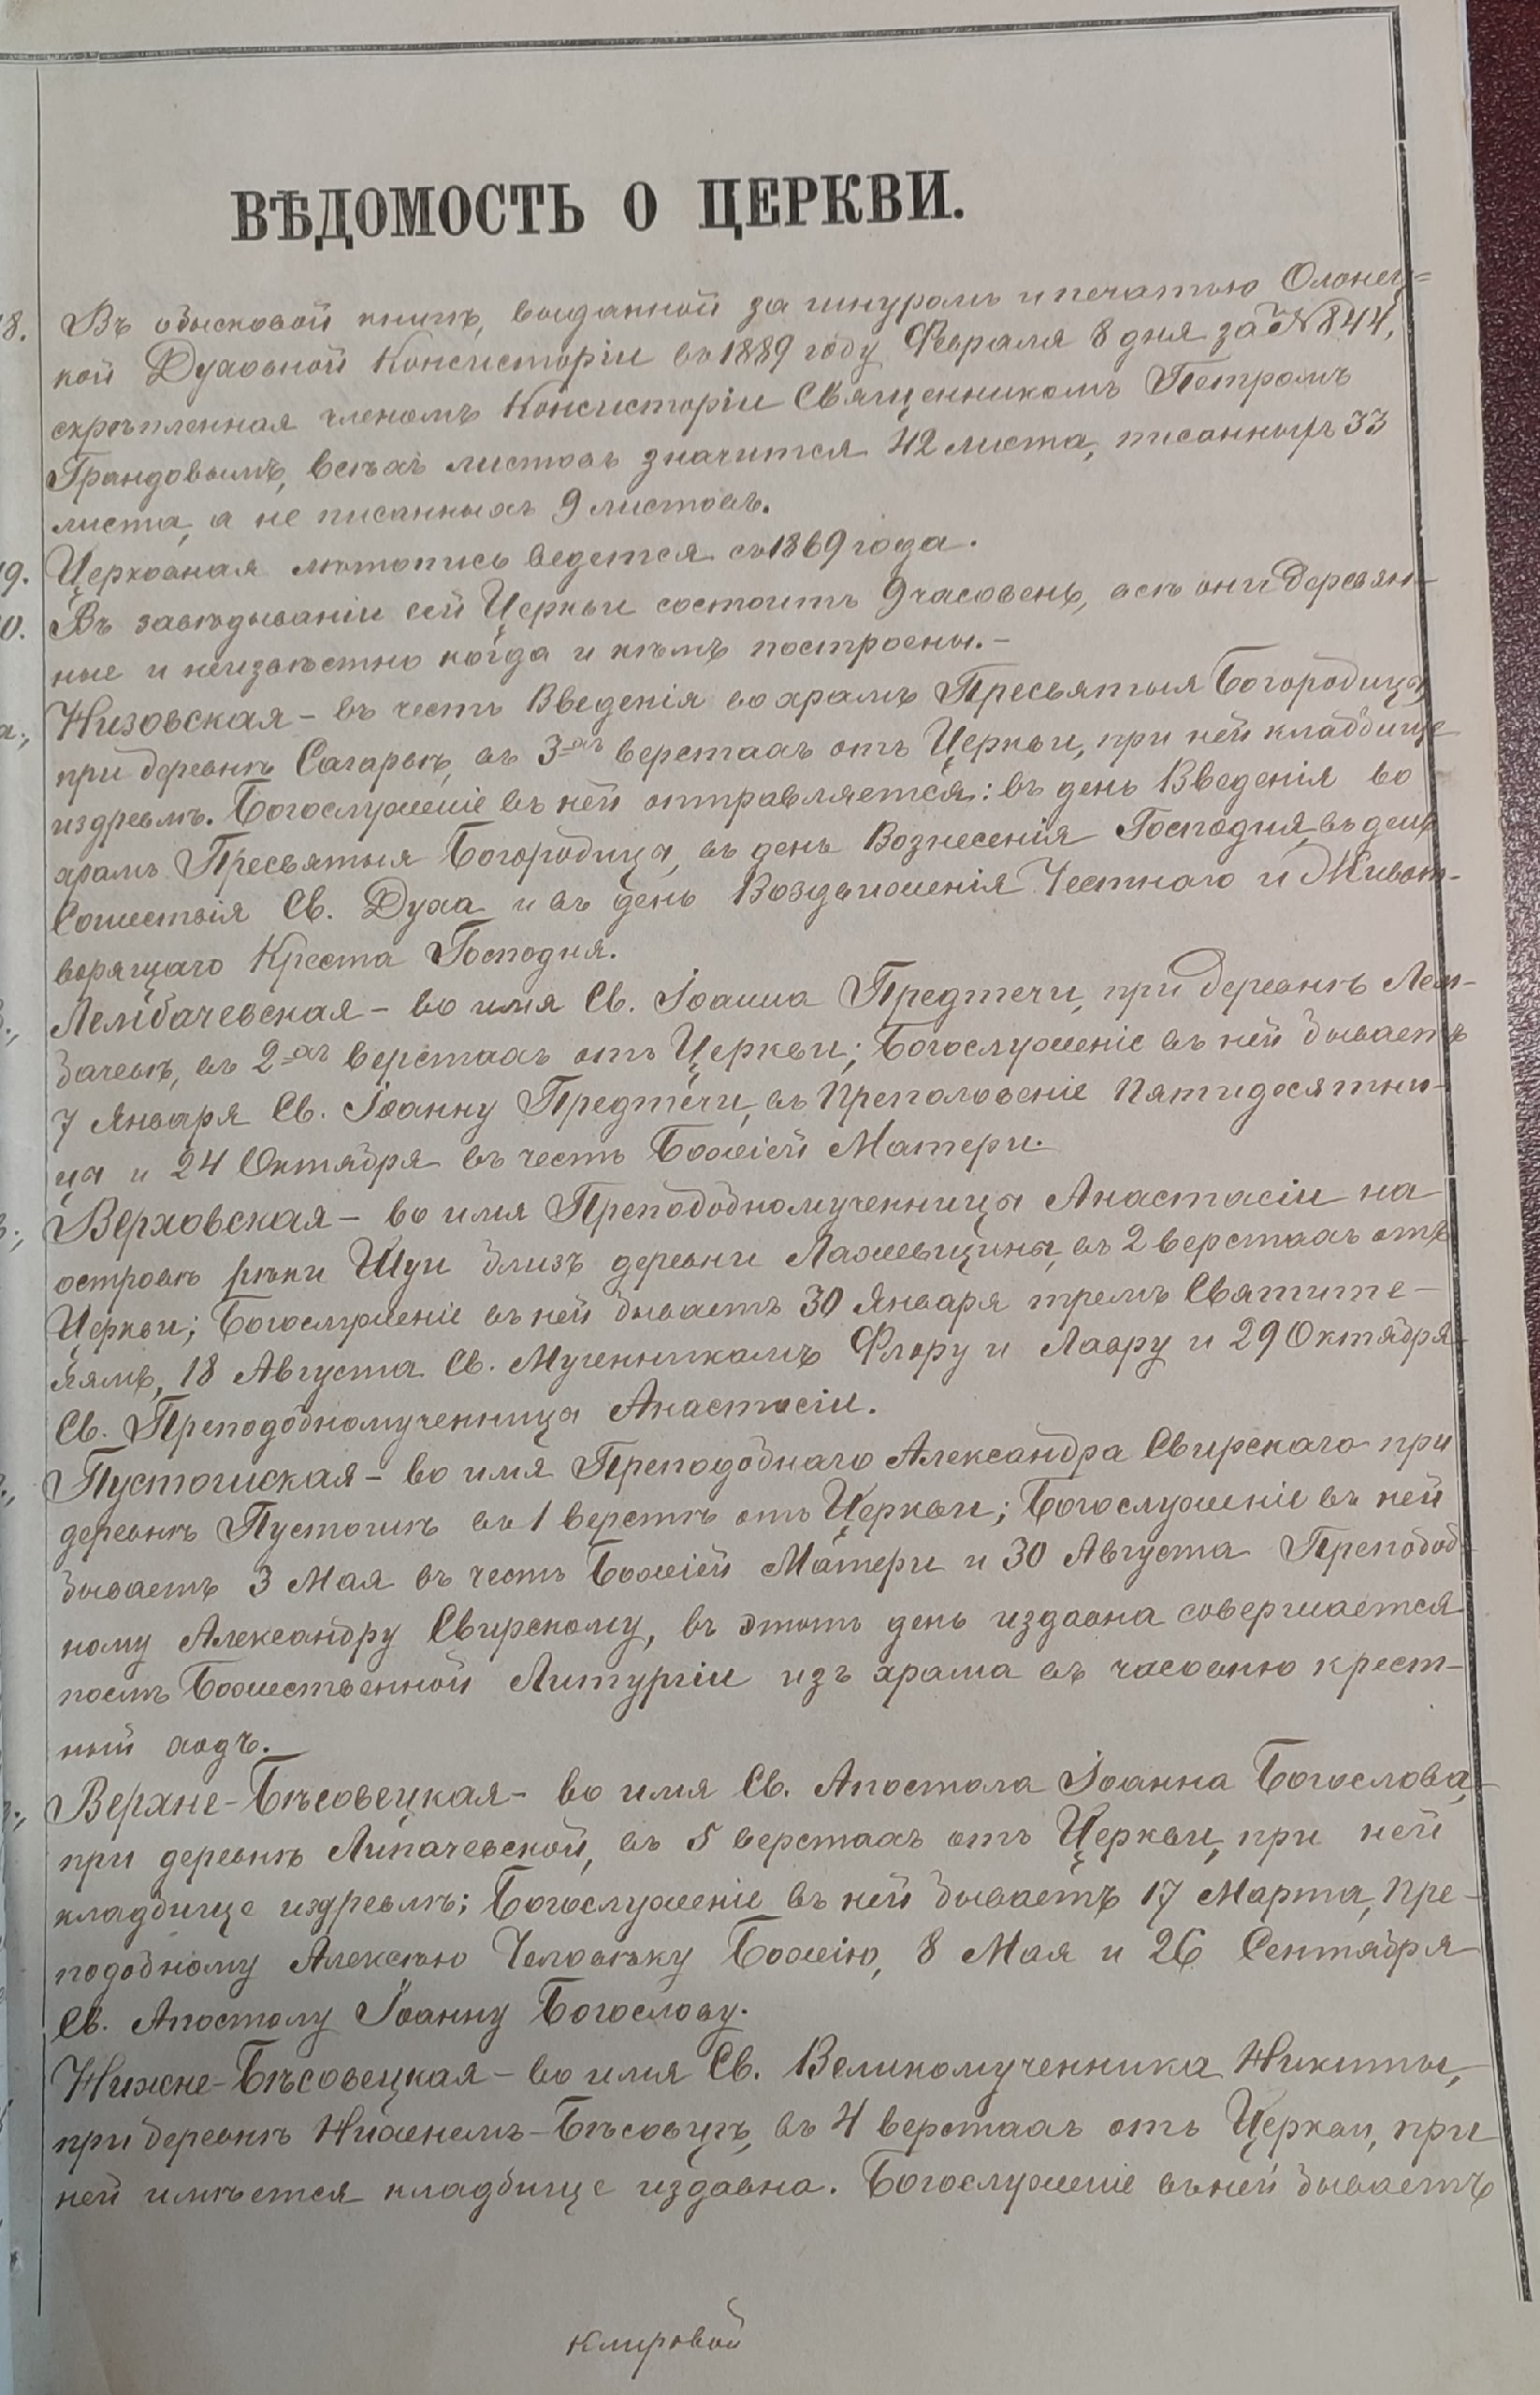 ВѢДОМОСТЬ О ЦЕРКВИ.
8. Въ обысковой книгѣ, выданной за шнуромъ и печатью Олонец=
кой Духовной Консисторіи въ 1889 году Февраля 8 дня за № 844,
скрѣпленная членомъ Консисторіи Священникомъ Петромъ
Грандовымъ, всѣхъ листовъ значится 42 листа, писанныхъ 33
листа, а не писанныхъ 9 листовъ.
9. Церковная лѣтопись ведется съ 1869 года.
0. Въ завѣдываніи сей Церкви состоитъ 9 часовень, всѣ они деревян-
ные и неизвѣстно когда и кѣмъ построены.-
а., Низовская - въ честь Введенія во храмъ Пресвятыя Богородицы,
при деревнѣ Сагарвѣ, въ 3-хъ верстахъ отъ Церкви, при ней кладбище
издревлѣ. Богослуженіе въ ней отправляется: въ день Введенія во
храмъ Пресвятыя Богородицы, въ день Вознесенія Господня, въ день
Сошествія Св. Духа и въ день Воздвиженія Честнаго и Живот-
ворящаго Креста Господня.
Лембачевская - во имя Св. Іоанна Предтечи, при деревнѣ Лем-
бачевѣ, въ 2-хъ верстахъ отъ Церкви; Богослуженіе въ ней бываетъ
7 Января Св. Іоанну Предтечи, въ Преполовеніе Пятидесятни-
цы и 24 Октября въ честь Божіей Матери.
в., Верховская - во имя Преподобномученницы Анастасіи на
островѣ рѣки Шуи близъ деревни Лажевщины, въ 2 верстахъ отъ
Церкви; Богослуженіе въ ней бываетъ 30 Января тремъ Святите-
лямъ, 18 Августа Св. Мученникамъ Флору и Лавру и 29 Октября
Св. Преподобномученницы Анастасіи.
Пустошская - во имя Преподобнаго Александра Свирскаго при
деревнѣ Пустошѣ въ 1 верстѣ отъ Церкви; Богослуженіе въ ней
бываетъ 3 Мая въ честь Божіей Матери и 30 Августа Преподоб-
ному Александру Свирскому, въ этотъ день издавна совершается
послѣ Божественной Литургіи изъ храма въ часовню крест-
ный ходъ.
Верхне-Бѣсовецкая - во имя Св. Апостола Іоанна Богослова,
при деревнѣ Липачевской, въ 5 верстахъ отъ Церкви, при ней
кладбище издревлѣ; Богослуженіе въ ней бываетъ 17 Марта, Пре-
подобному Алексѣю Человѣку Божію, 8 Мая и 26 Сентября
Св. Апостолу Іоанну Богослову.
Нижне-Бѣсовецкая - во имя Св. Великомученника Никиты,
при деревнѣ Нижнемъ-Бѣсовцѣ, въ 4 верстахъ отъ Церкви, при
ней имѣется кладбище издавна. Богослуженіе въ ней бываетъ
клировой